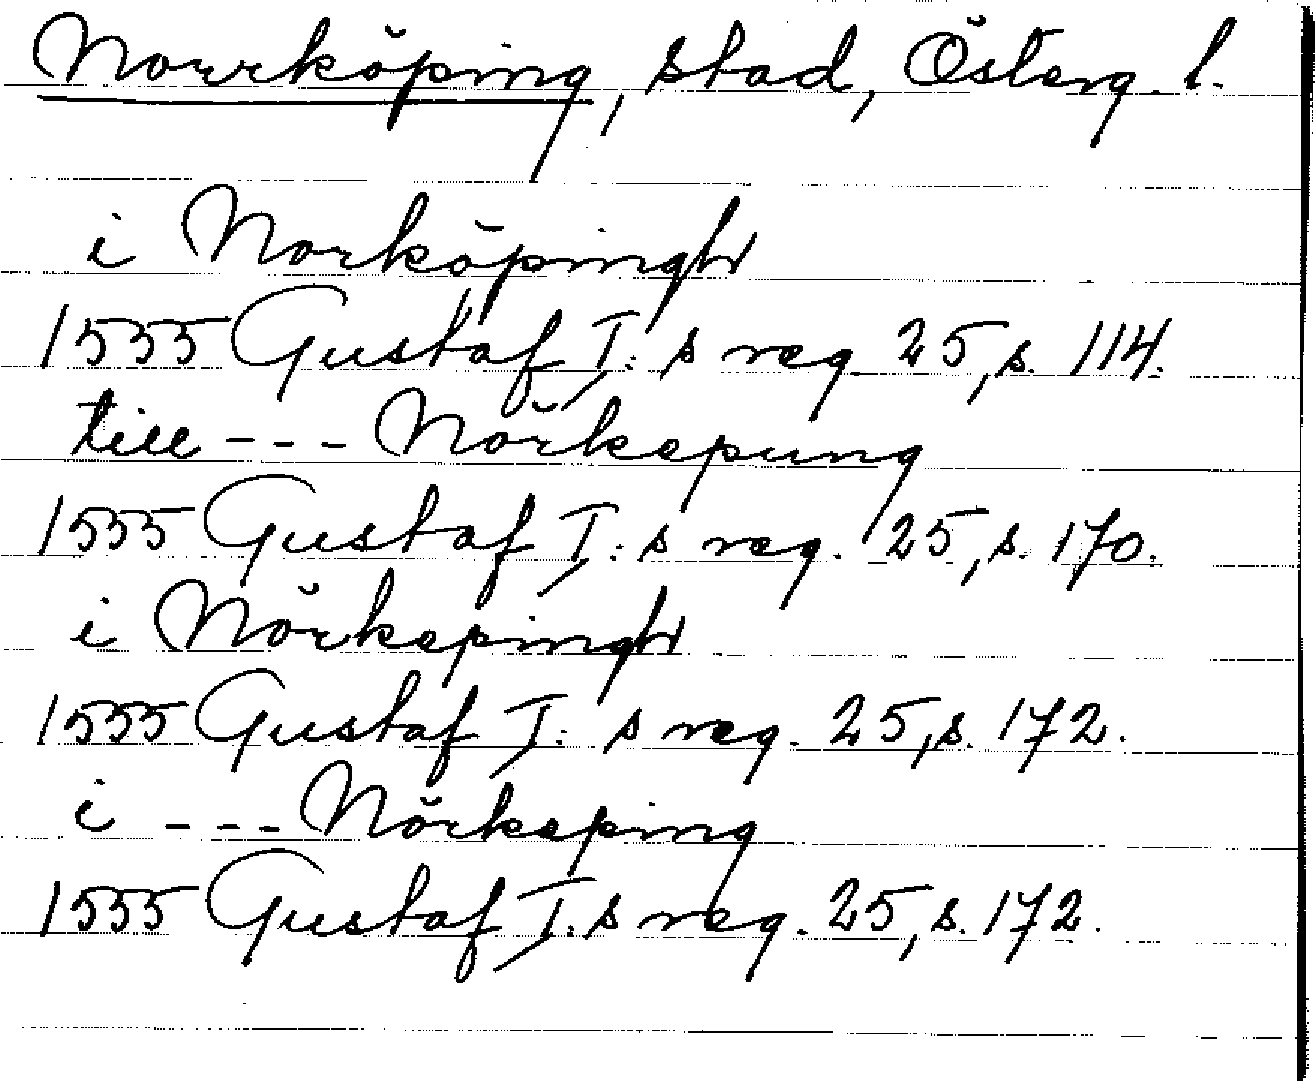 Norrköping, stad, Österg. l.
i Norköpingh
1555 Gustaf I:s reg. 25, s. 114.
till --- Nörkepung
1555 Gustaf I:s reg. 25, s. 170.
i Nörkepingh
1555 Gustaf I:s reg. 25, s. 172.
i --- Nörkeping
1555 Gustaf I:s reg. 25, s. 172.